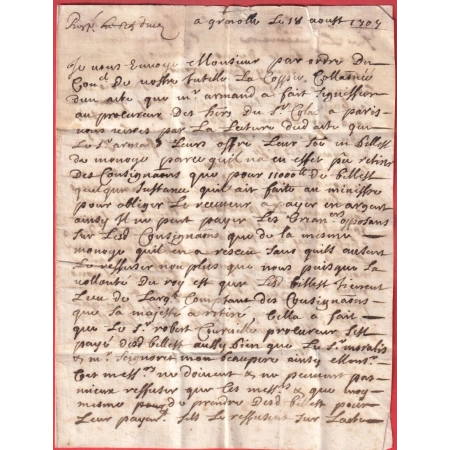 a grenoble Le 18 aoust 1707
Je vous Envoye Monsieur par ordre du
Con.el de nostre tutelle La Coppie Collationée
dun acte que mr armand a fait signiffier
au procureur des hoirs du Sr Colas a paris
vous verres par La Lecture dud acte que
Le Sr armand Leurs offre Leur en billets
de monoye parce quil na en effet pu retirer
des Consignaons que pour 11000ll de billets
quelque Instance quil aie faite au ministre
pour obliger Le receveur a payer en argent
ainsy Il ne peut payer Les Crean.ers opposans
sur Lesd Consignaons que de la mesme
monoye quil en a receu sans quils ausent
Le reffuser non plus que nous puisque La
vollonté du roy est que Les billets tienent
Lieu de Largt Comptant des Consignaons
que sa majesté a retiré, Cella a fait
que Le Sr robert procureur sest
payé des billets aussy bien que Le Sr
& mr mon beaupere ainsy Monsr.
Ces messrs ne doivent & ne peuvent pas
mieux reffuser que Ces messrs & que moy
mesme de prendre desd billets pour
Leur payemt. sils Le reffusent sur